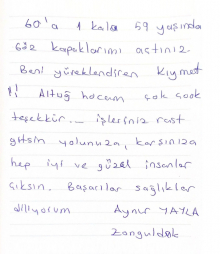 60'a 1 kala 59 yaşında
Göz kapaklarımı açtınız.
Beni yüreklendiren Kıymet
li Altuğ hocam çok çook
teşekkür... işleriniz rast
gitsin yolunuza, karşınıza
hep iyi ve güzel insanlar
çıksın. Başarılar sağlıklar
diliyorum Aynur YAYLA
Zonguldak